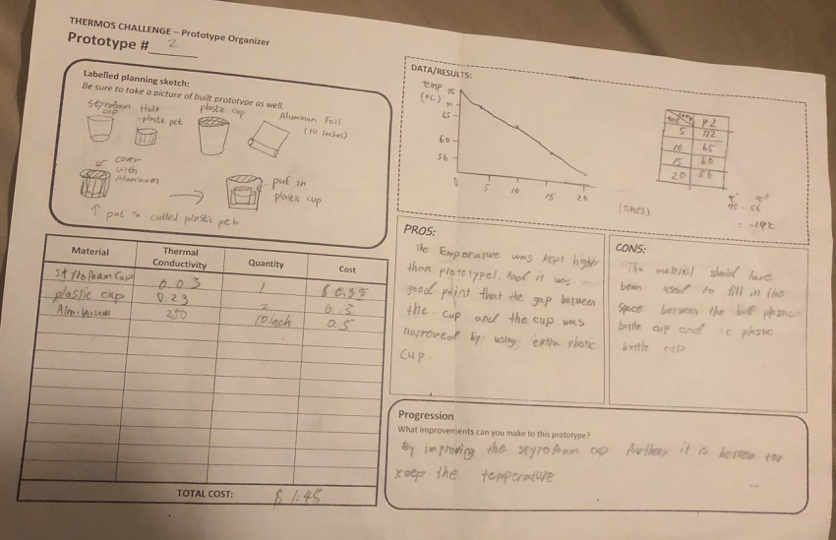 THERMOS CHALLENGE – Prototype Organizer
Prototype # 2
Labelled planning sketch:
Be sure to take a picture of built prototype as well.
Styrofoam cup
Half plastc pet
plastic cup
Aluminum Foil
(10 inches)
cover with Aluminum
put in plastic cup
↑ put in cutted plastic pet
Material Thermal Conductivity Quantity Cost
Styrofoam Cup 0.03 1 $ 0.35
plastic cup 0.23 2
Aluminum 250 10 inch 0.5
TOTAL COST: $ 1.45
DATA/RESULTS:
Temp
(°C)
60
56
0 5 10 15 20
(times)
P2
5
10 65
15 60
20 56
PROS:
The Temperature was kept higher
than prototype1. And it was
good point that the gap between
the cup and the cup was
narrowed by using extra plastic
cup.
CONS:
The material should have
been used to fill in the
space between the half plastic
bottle cup and plastic
bottle cup
Progression
What improvements can you make to this prototype?
By improving the styrofoam cup further, it is better
keep the temperature